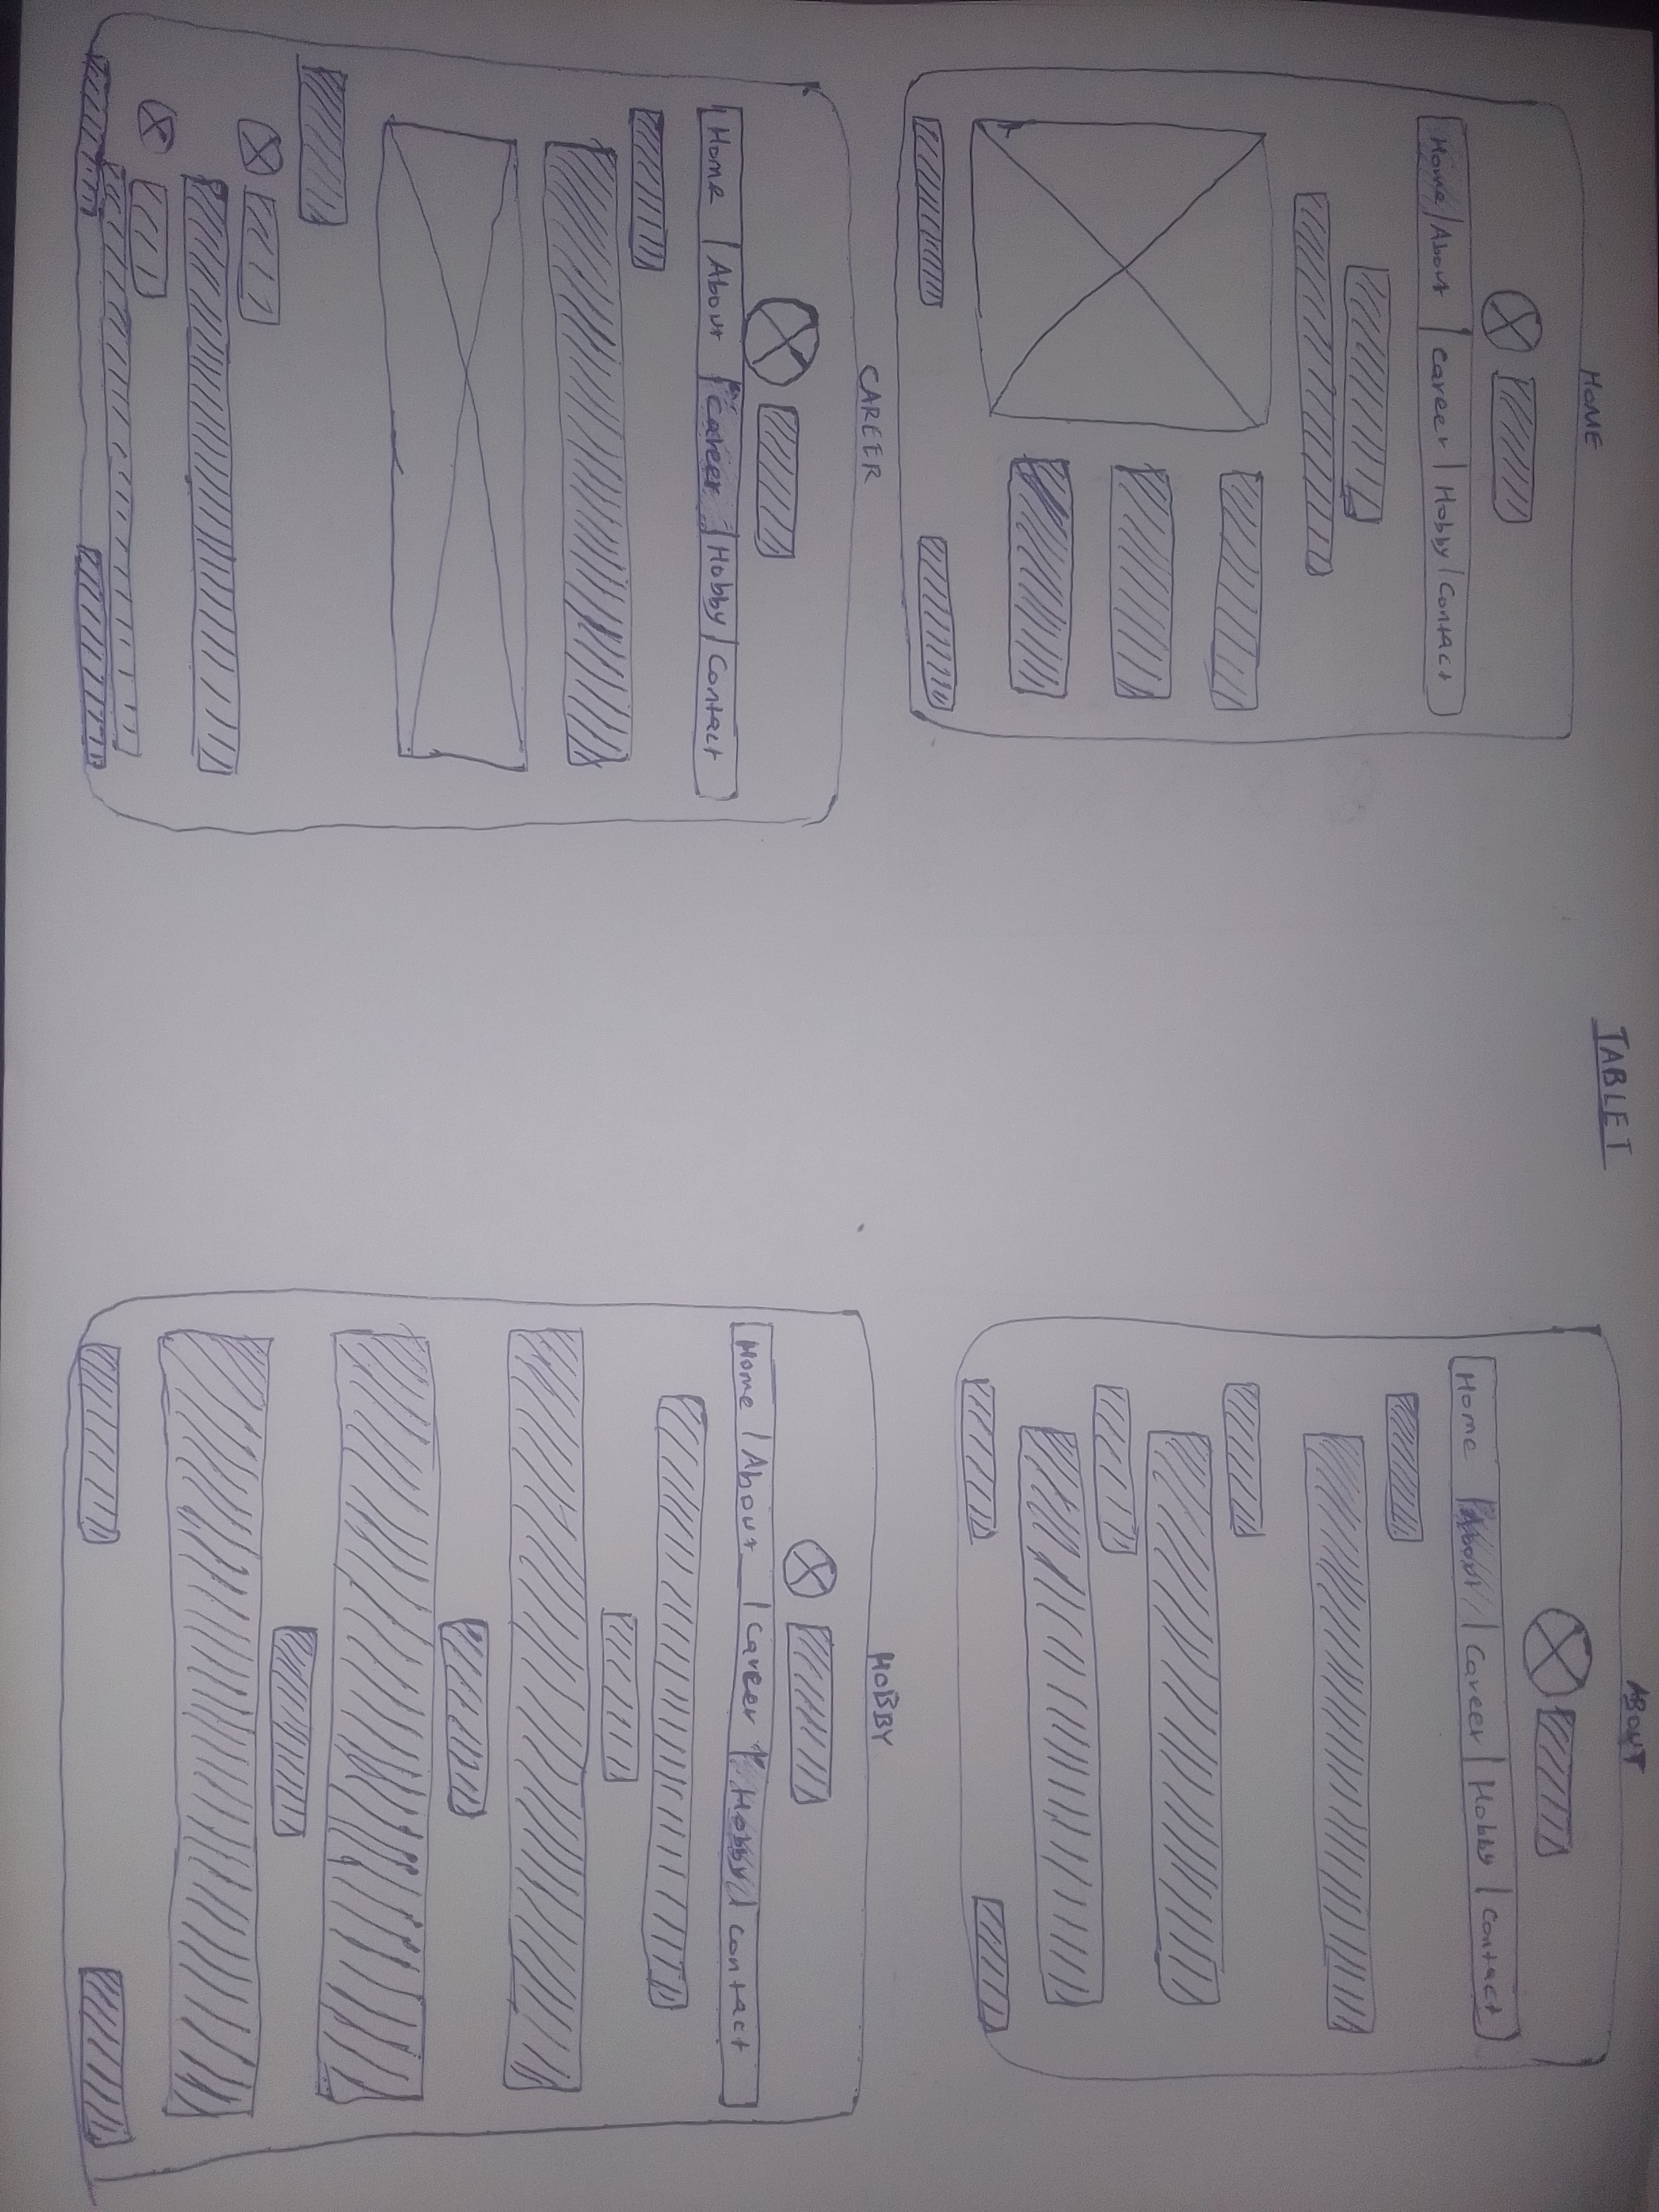 TABLET
HOME
Home | About | Career | Hobby | Contact
ABOUT
Home | About | Career | Hobby | Contact
CAREER
Home | About | Career | Hobby | Contact
HOBBY
Home | About | Career | Hobby | Contact